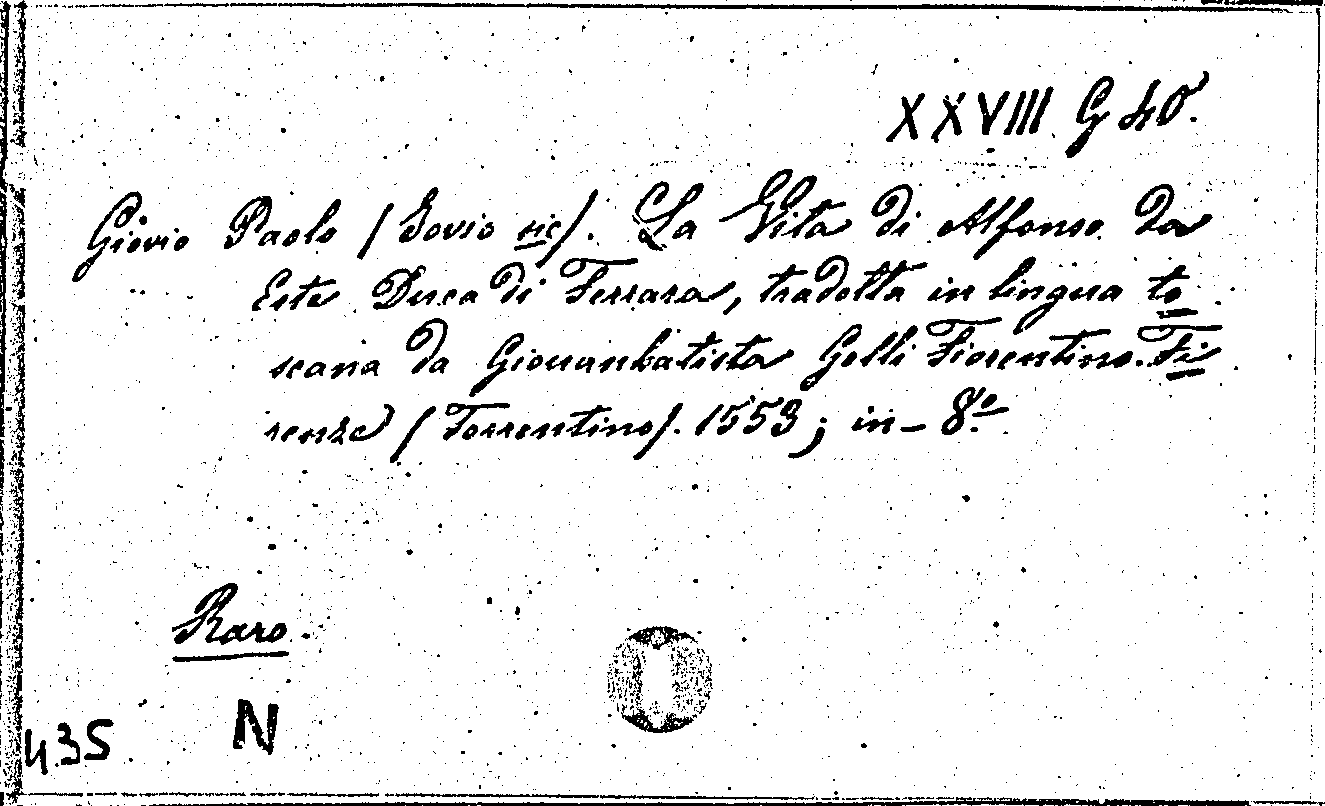 XXVIII G 40.
Giovio Paolo (Jovio sic). La Vita di Alfonso da
Este Duca di Ferrara, tradotta in lingua to
scana da Giovanbatista Gelli Fiorentino. Fi
renze (Torrentino). 1553; in-8.º
Raro.
N
435